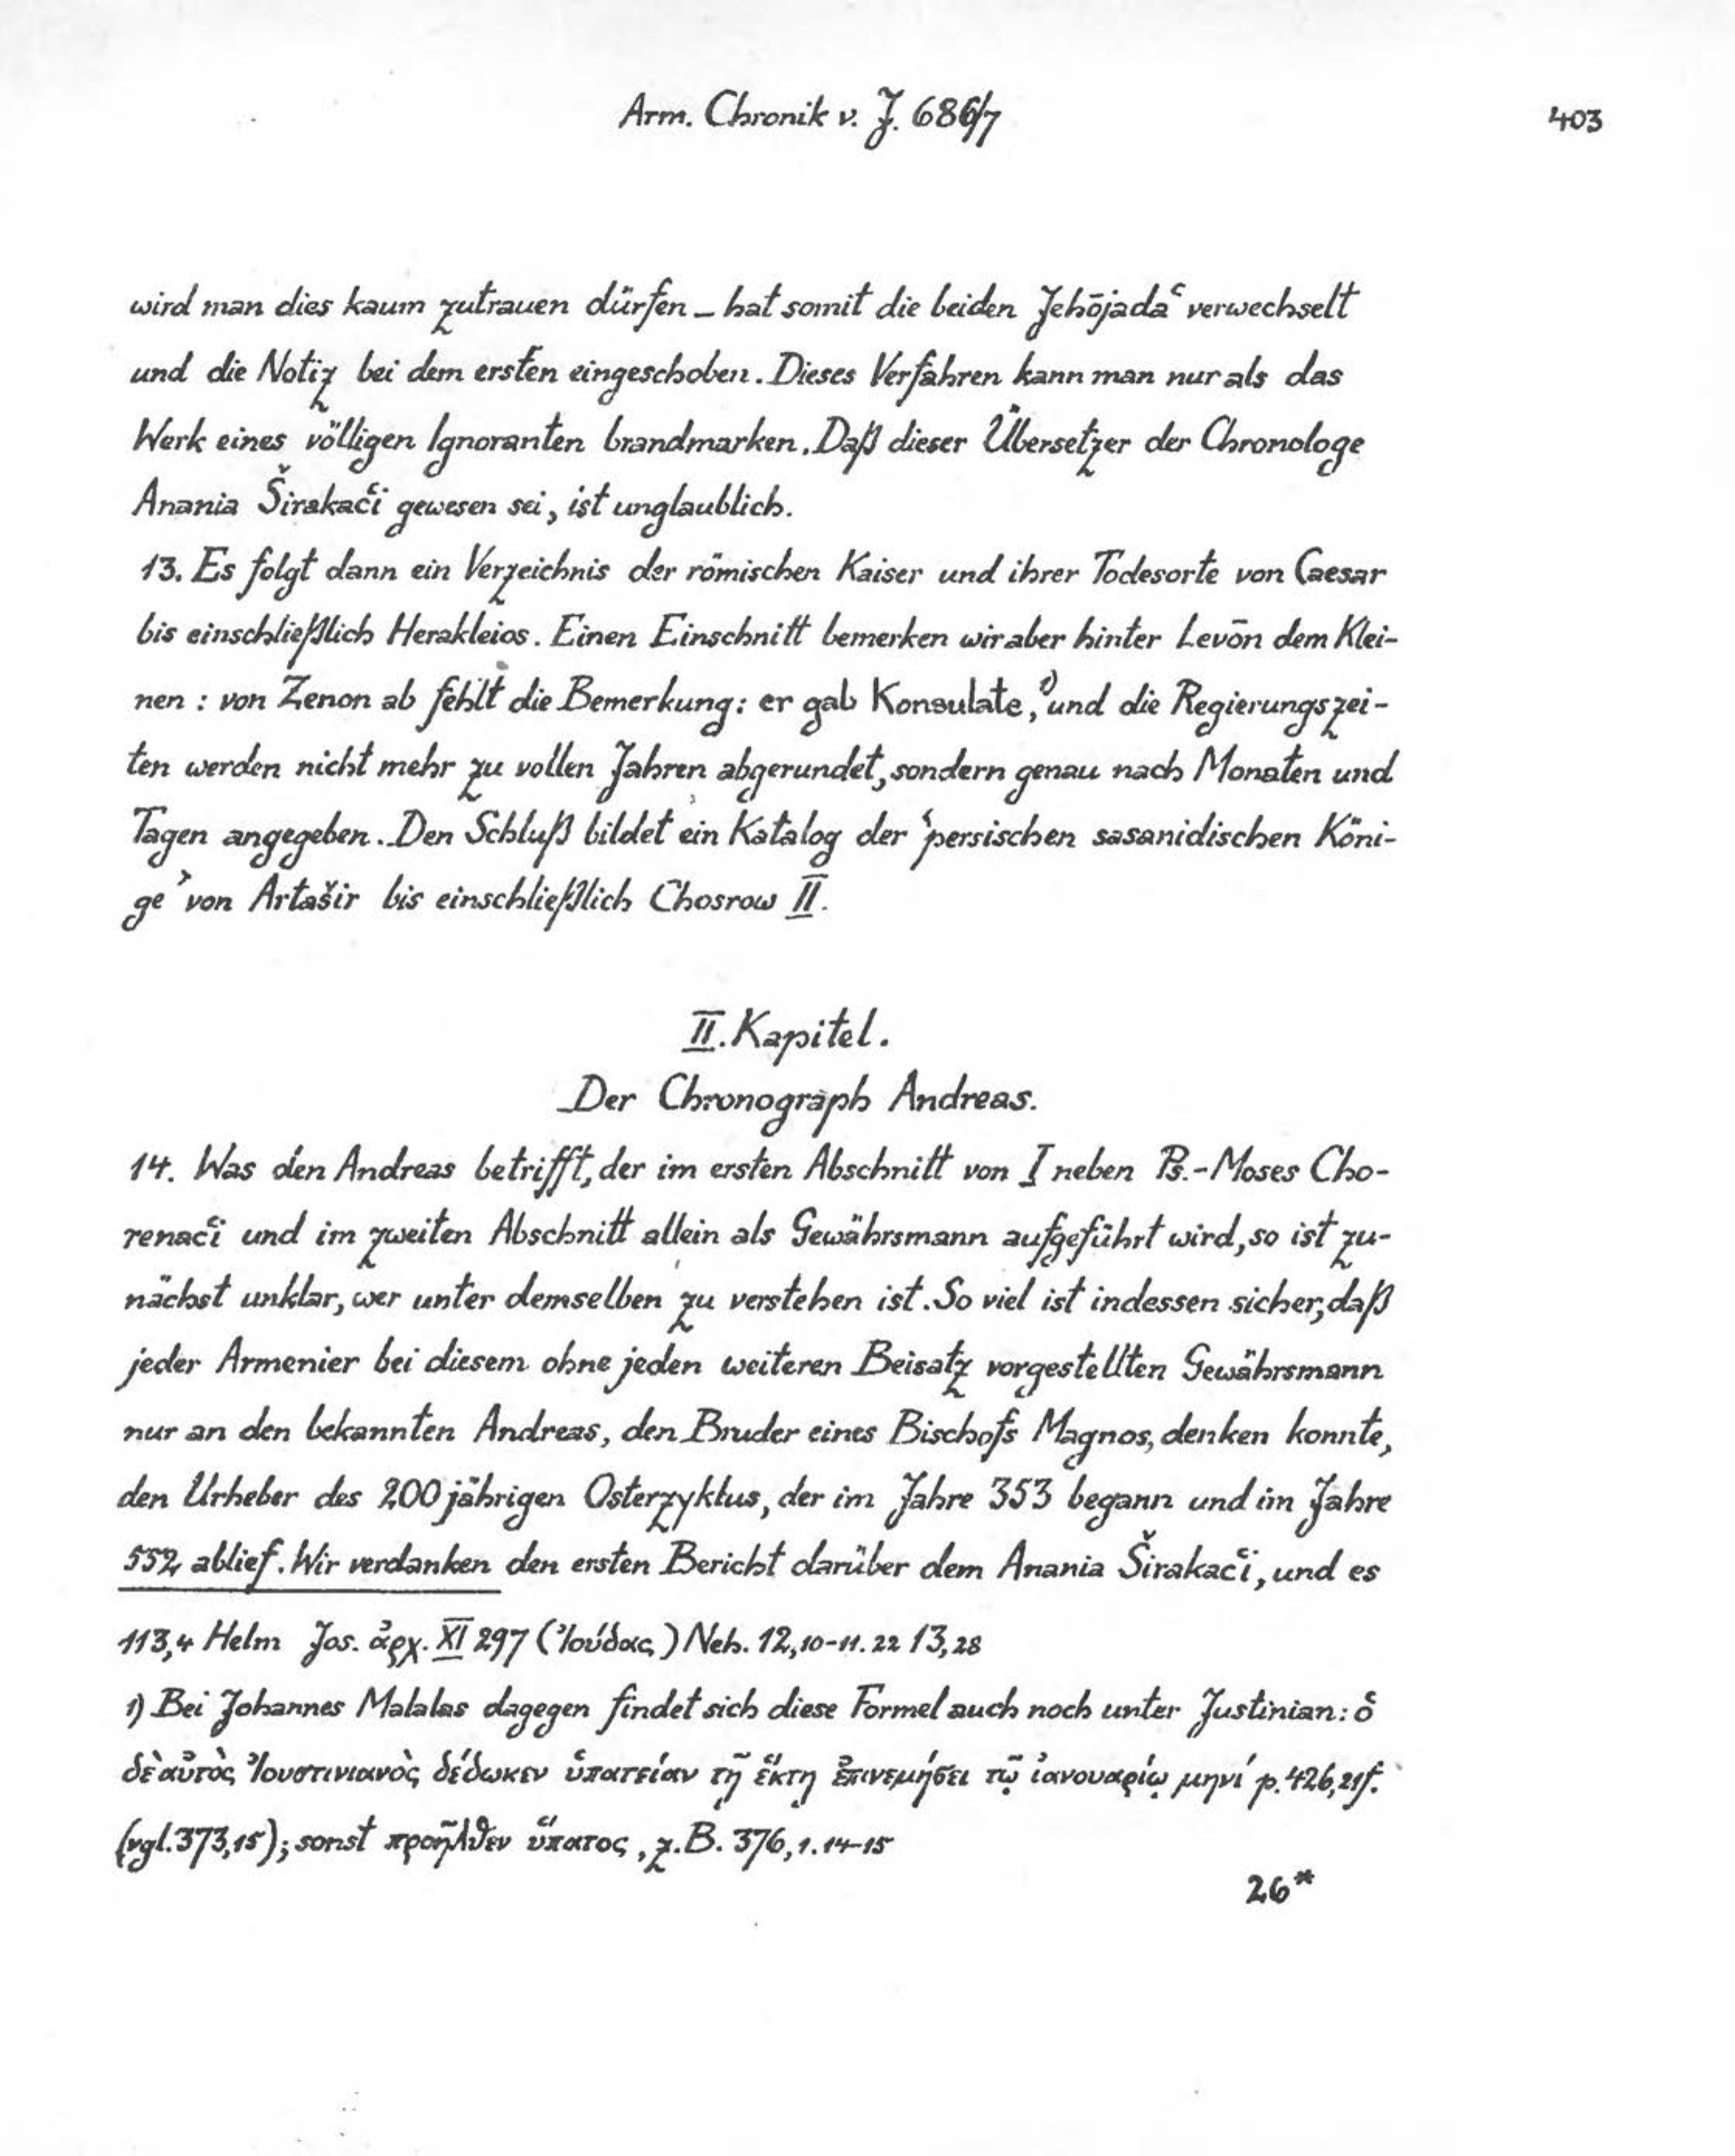 Arm. Chronik v. J. 686/7 403
wird man dies kaum zutrauen dürfen – hat somit die beiden Jehōjadaʿ verwechselt
und die Notiz bei dem ersten eingeschoben. Dieses Verfahren kann man nur als das
Werk eines völligen Ignoranten brandmarken. Daß dieser Übersetzer der Chronologe
Anania Širakacʿi gewesen sei, ist unglaublich.
13. Es folgt dann ein Verzeichnis der römischen Kaiser und ihrer Todesorte von Caesar
bis einschließlich Herakleios. Einen Einschnitt bemerken wir aber hinter Levōn dem Klei-
nen : von Zenon ab fehlt die Bemerkung: er gab Konsulate,¹⁾ und die Regierungszei-
ten werden nicht mehr zu vollen Jahren abgerundet, sondern genau nach Monaten und
Tagen angegeben. Den Schluß bildet ein Katalog der ‘persischen sasanidischen Köni-
ge’ von Artašir bis einschließlich Chosrow II.
II. Kapitel.
Der Chronograph Andreas.
14. Was den Andreas betrifft, der im ersten Abschnitt von I neben Ps.-Moses Cho-
renacʿi und im zweiten Abschnitt allein als Gewährsmann aufgeführt wird, so ist zu-
nächst unklar, wer unter demselben zu verstehen ist. So viel ist indessen sicher, daß
jeder Armenier bei diesem ohne jeden weiteren Beisatz vorgestellten Gewährsmann
nur an den bekannten Andreas, den Bruder eines Bischofs Magnos, denken konnte,
den Urheber des 200jährigen Osterzyktus, der im Jahre 353 begann und im Jahre
552 ablief. Wir verdanken den ersten Bericht darüber dem Anania Širakacʿi, und es
113,4 Helm Jos. ἀρχ. XI 297 (Ἰούδας) Neh. 12,10-11. 22 13,28
1) Bei Johannes Malalas dagegen findet sich diese Formel auch noch unter Justinian: ὁ
δὲ αὐτὸς Ἰουστινιανὸς δέδωκεν ὑπατείαν τῇ ἕκτῃ ἐπινεμήσει τῷ ἰανουαρίῳ μηνί p. 426,21f.
(vgl. 373,15); sonst προῆλθεν ὕπατος, z.B. 376,1. 14-15
26*